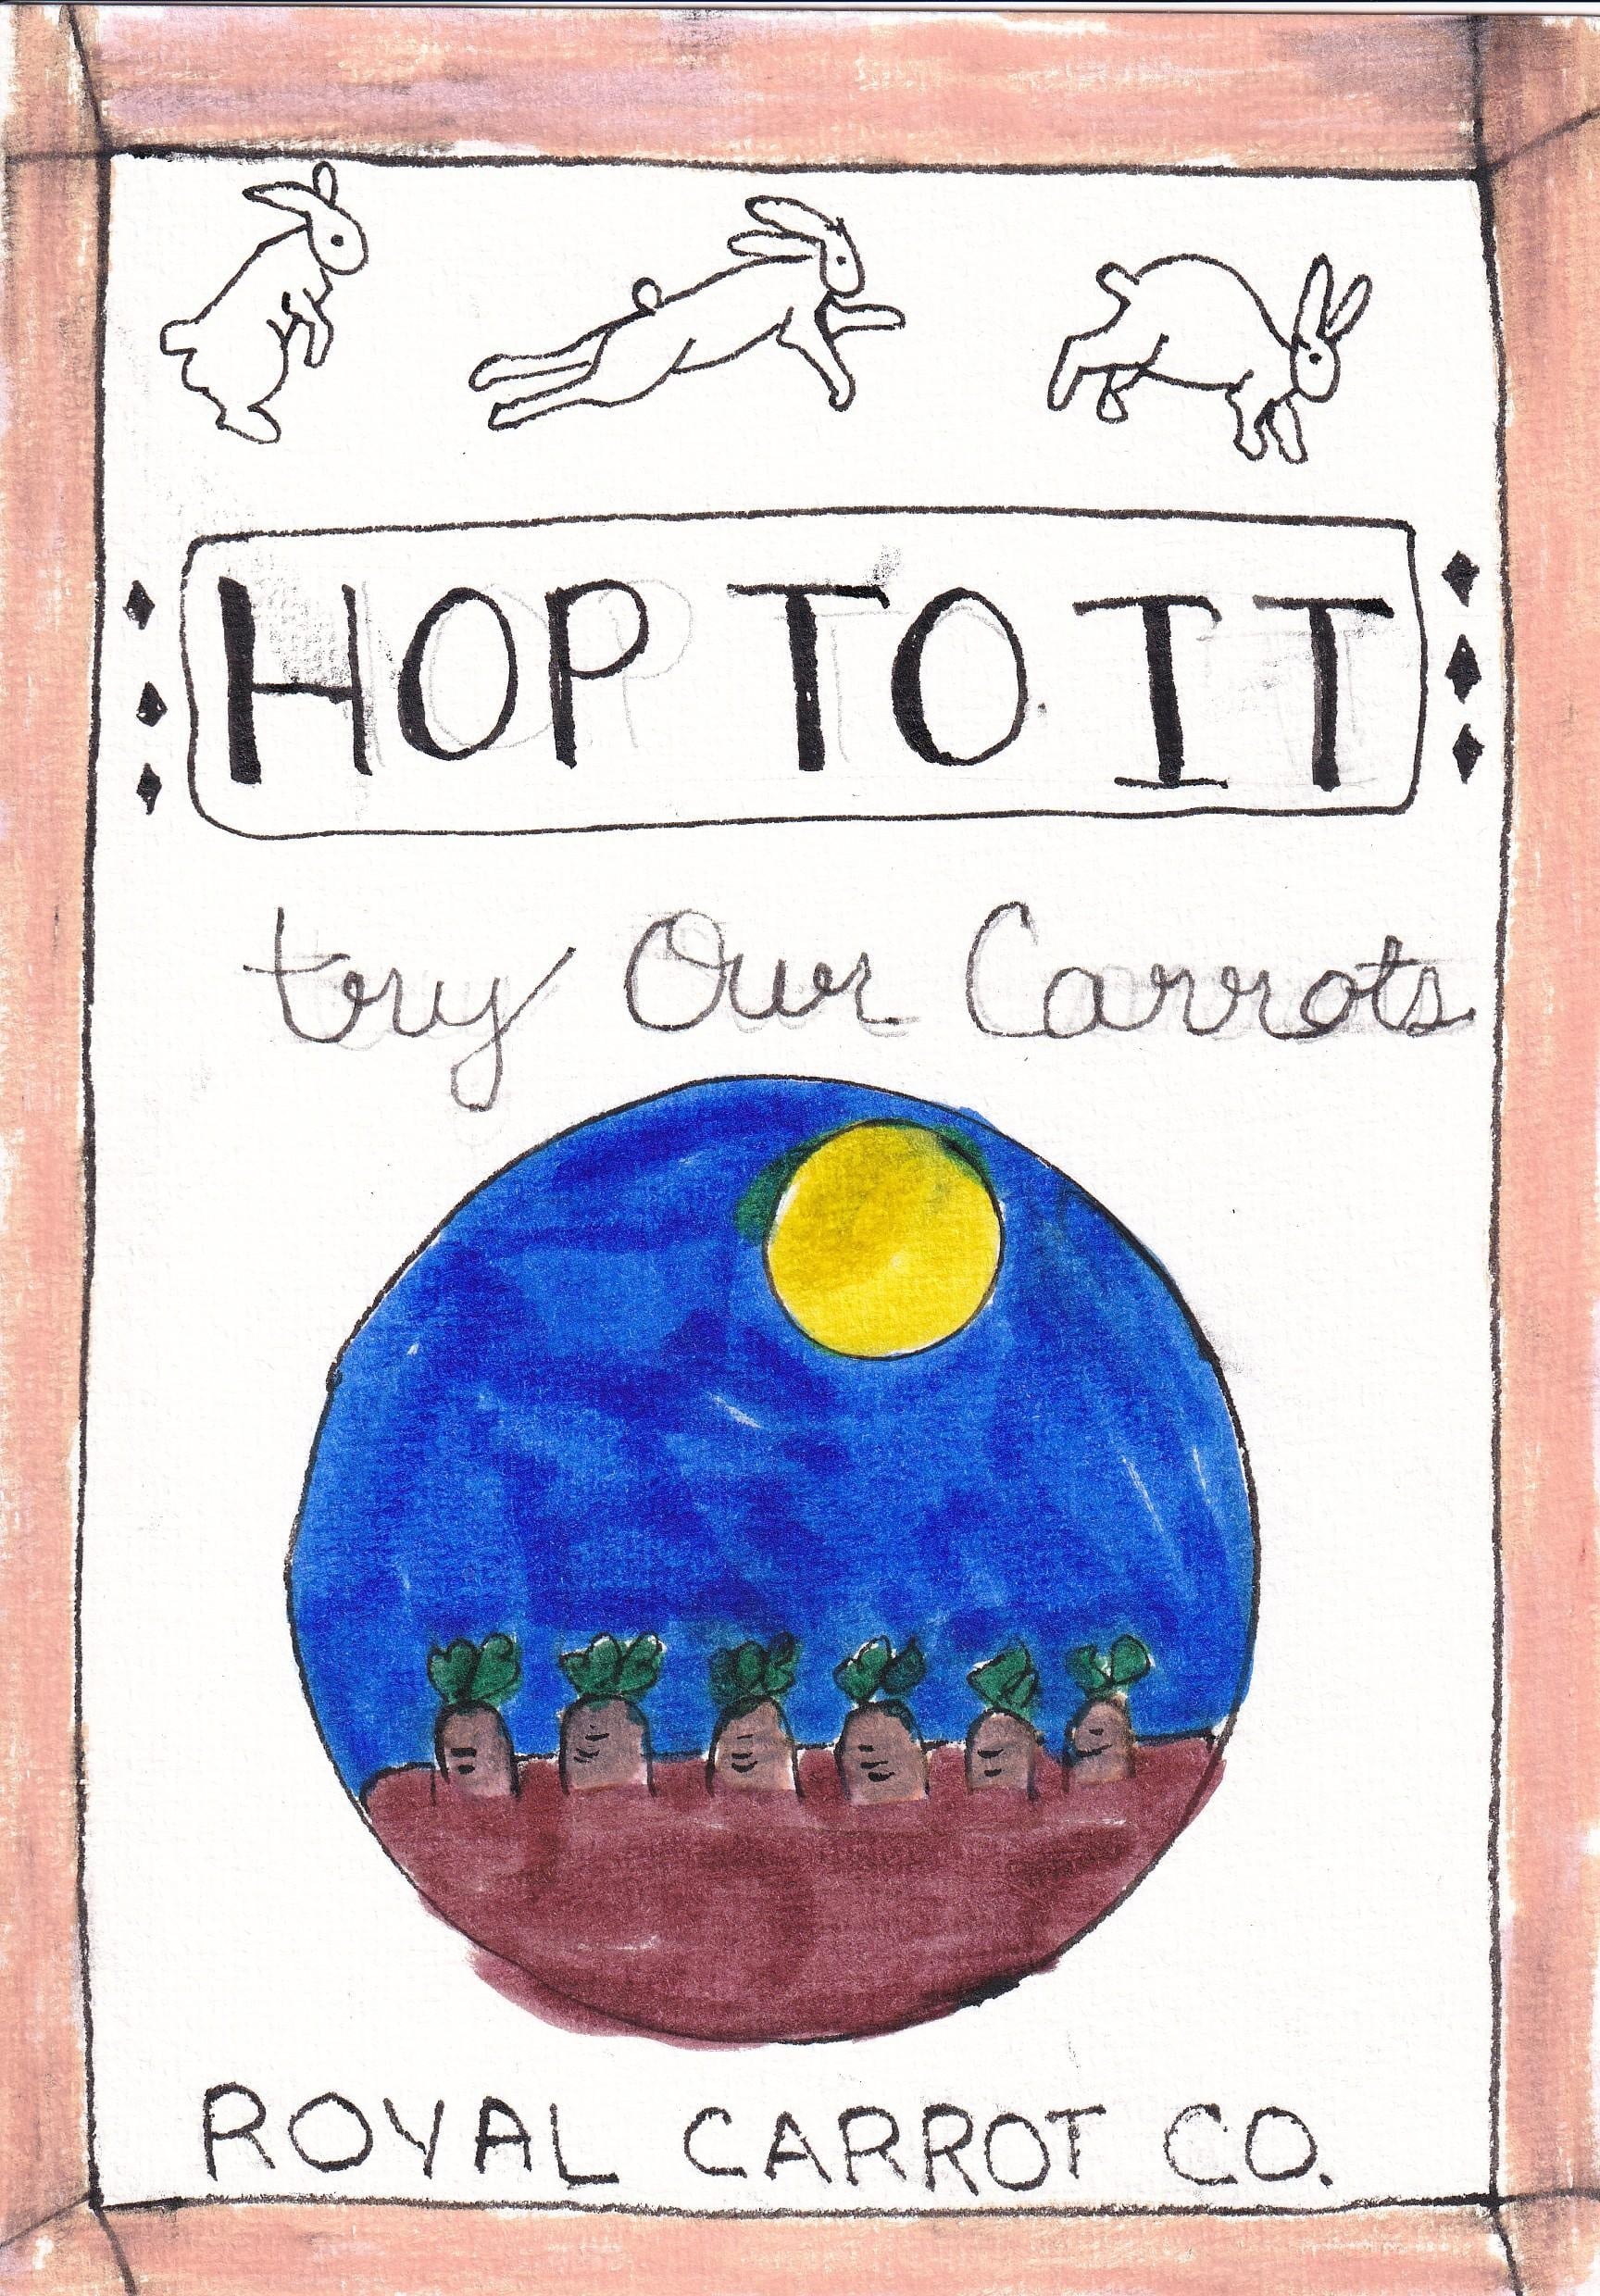 HOP TO IT
try Our Carrots
ROYAL CARROT CO.